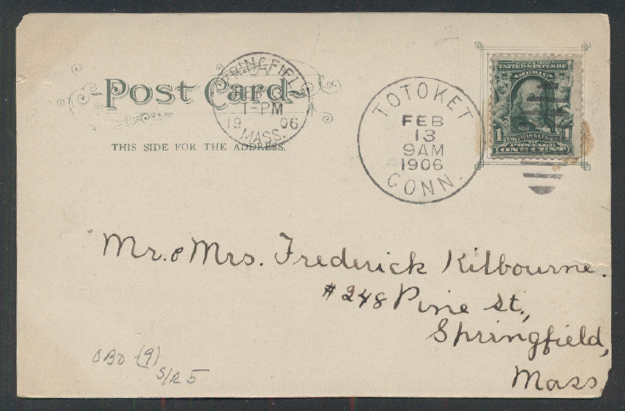 Post Card
THIS SIDE FOR THE ADDRESS.
SPRINGFIELD
1-PM
19 06
MASS.
TOTOKET
FEB
13
9AM
1906
CONN.
1 1
ONE CENT
Mr. & Mrs. Frederick Kilbourne.
#248 Pine St.,
Springfield,
Mass
OBO (9)
S/R 5